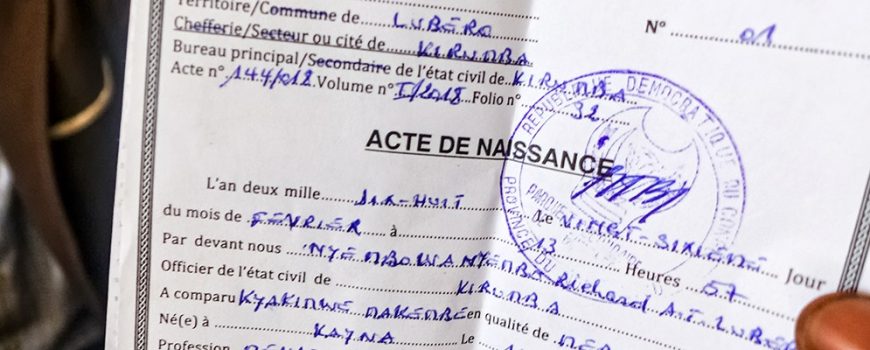 Territoire/Commune de LUBERO
N° 01
Chefferie/Secteur ou cité de KIRUMBA
Bureau principal/Secondaire de l'état civil de KIRUMBA
Acte n° 144/012 Volume n° I/2018 Folio n° 32
ACTE DE NAISSANCE
RÉPUBLIQUE DÉMOCRATIQUE DU CONGO
PROVINCE DU
L'an deux mille DIX-HUIT Le VINGT-SIXIEME Jour
du mois de FEVRIER à 13 Heures 57
Par devant nous Richard
Officier de l'état civil de KIRUMBA
A comparu en qualité de
Né(e) à KAYNA Le
Profession